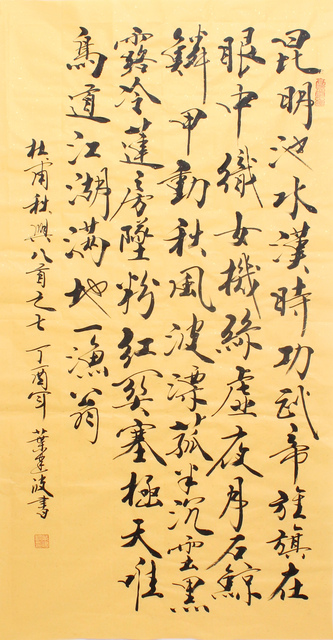 昆明池水漢時功武帝旌旗在
眼中織女機絲虛夜月石鯨
鱗甲動秋風波漂菰米沉雲黑
露冷蓮房墜粉紅關塞極天唯
鳥道江湖滿地一漁翁
杜甫秋興八首之七 丁酉年 葉波書